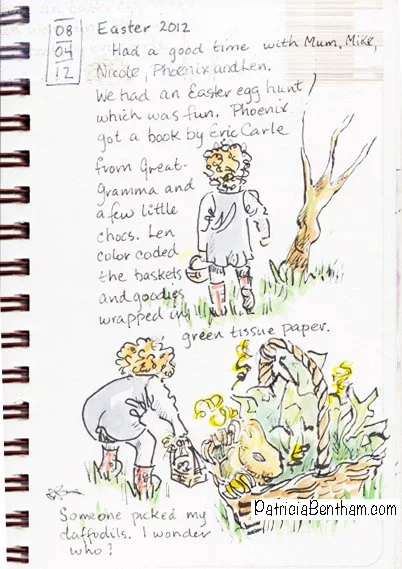 08
04
12
Easter 2012
Had a good time with Mum, Mike,
Nicole, Phoenix and Len.
We had an Easter egg hunt
which was fun. Phoenix
got a book by Eric Carle
from Great-
Gramma and
a few little
chocs. Len
color coded
the baskets
and goodies
wrapped in
green tissue paper.
Someone picked my
daffodils. I wonder
who?
PatriciaBentham.com